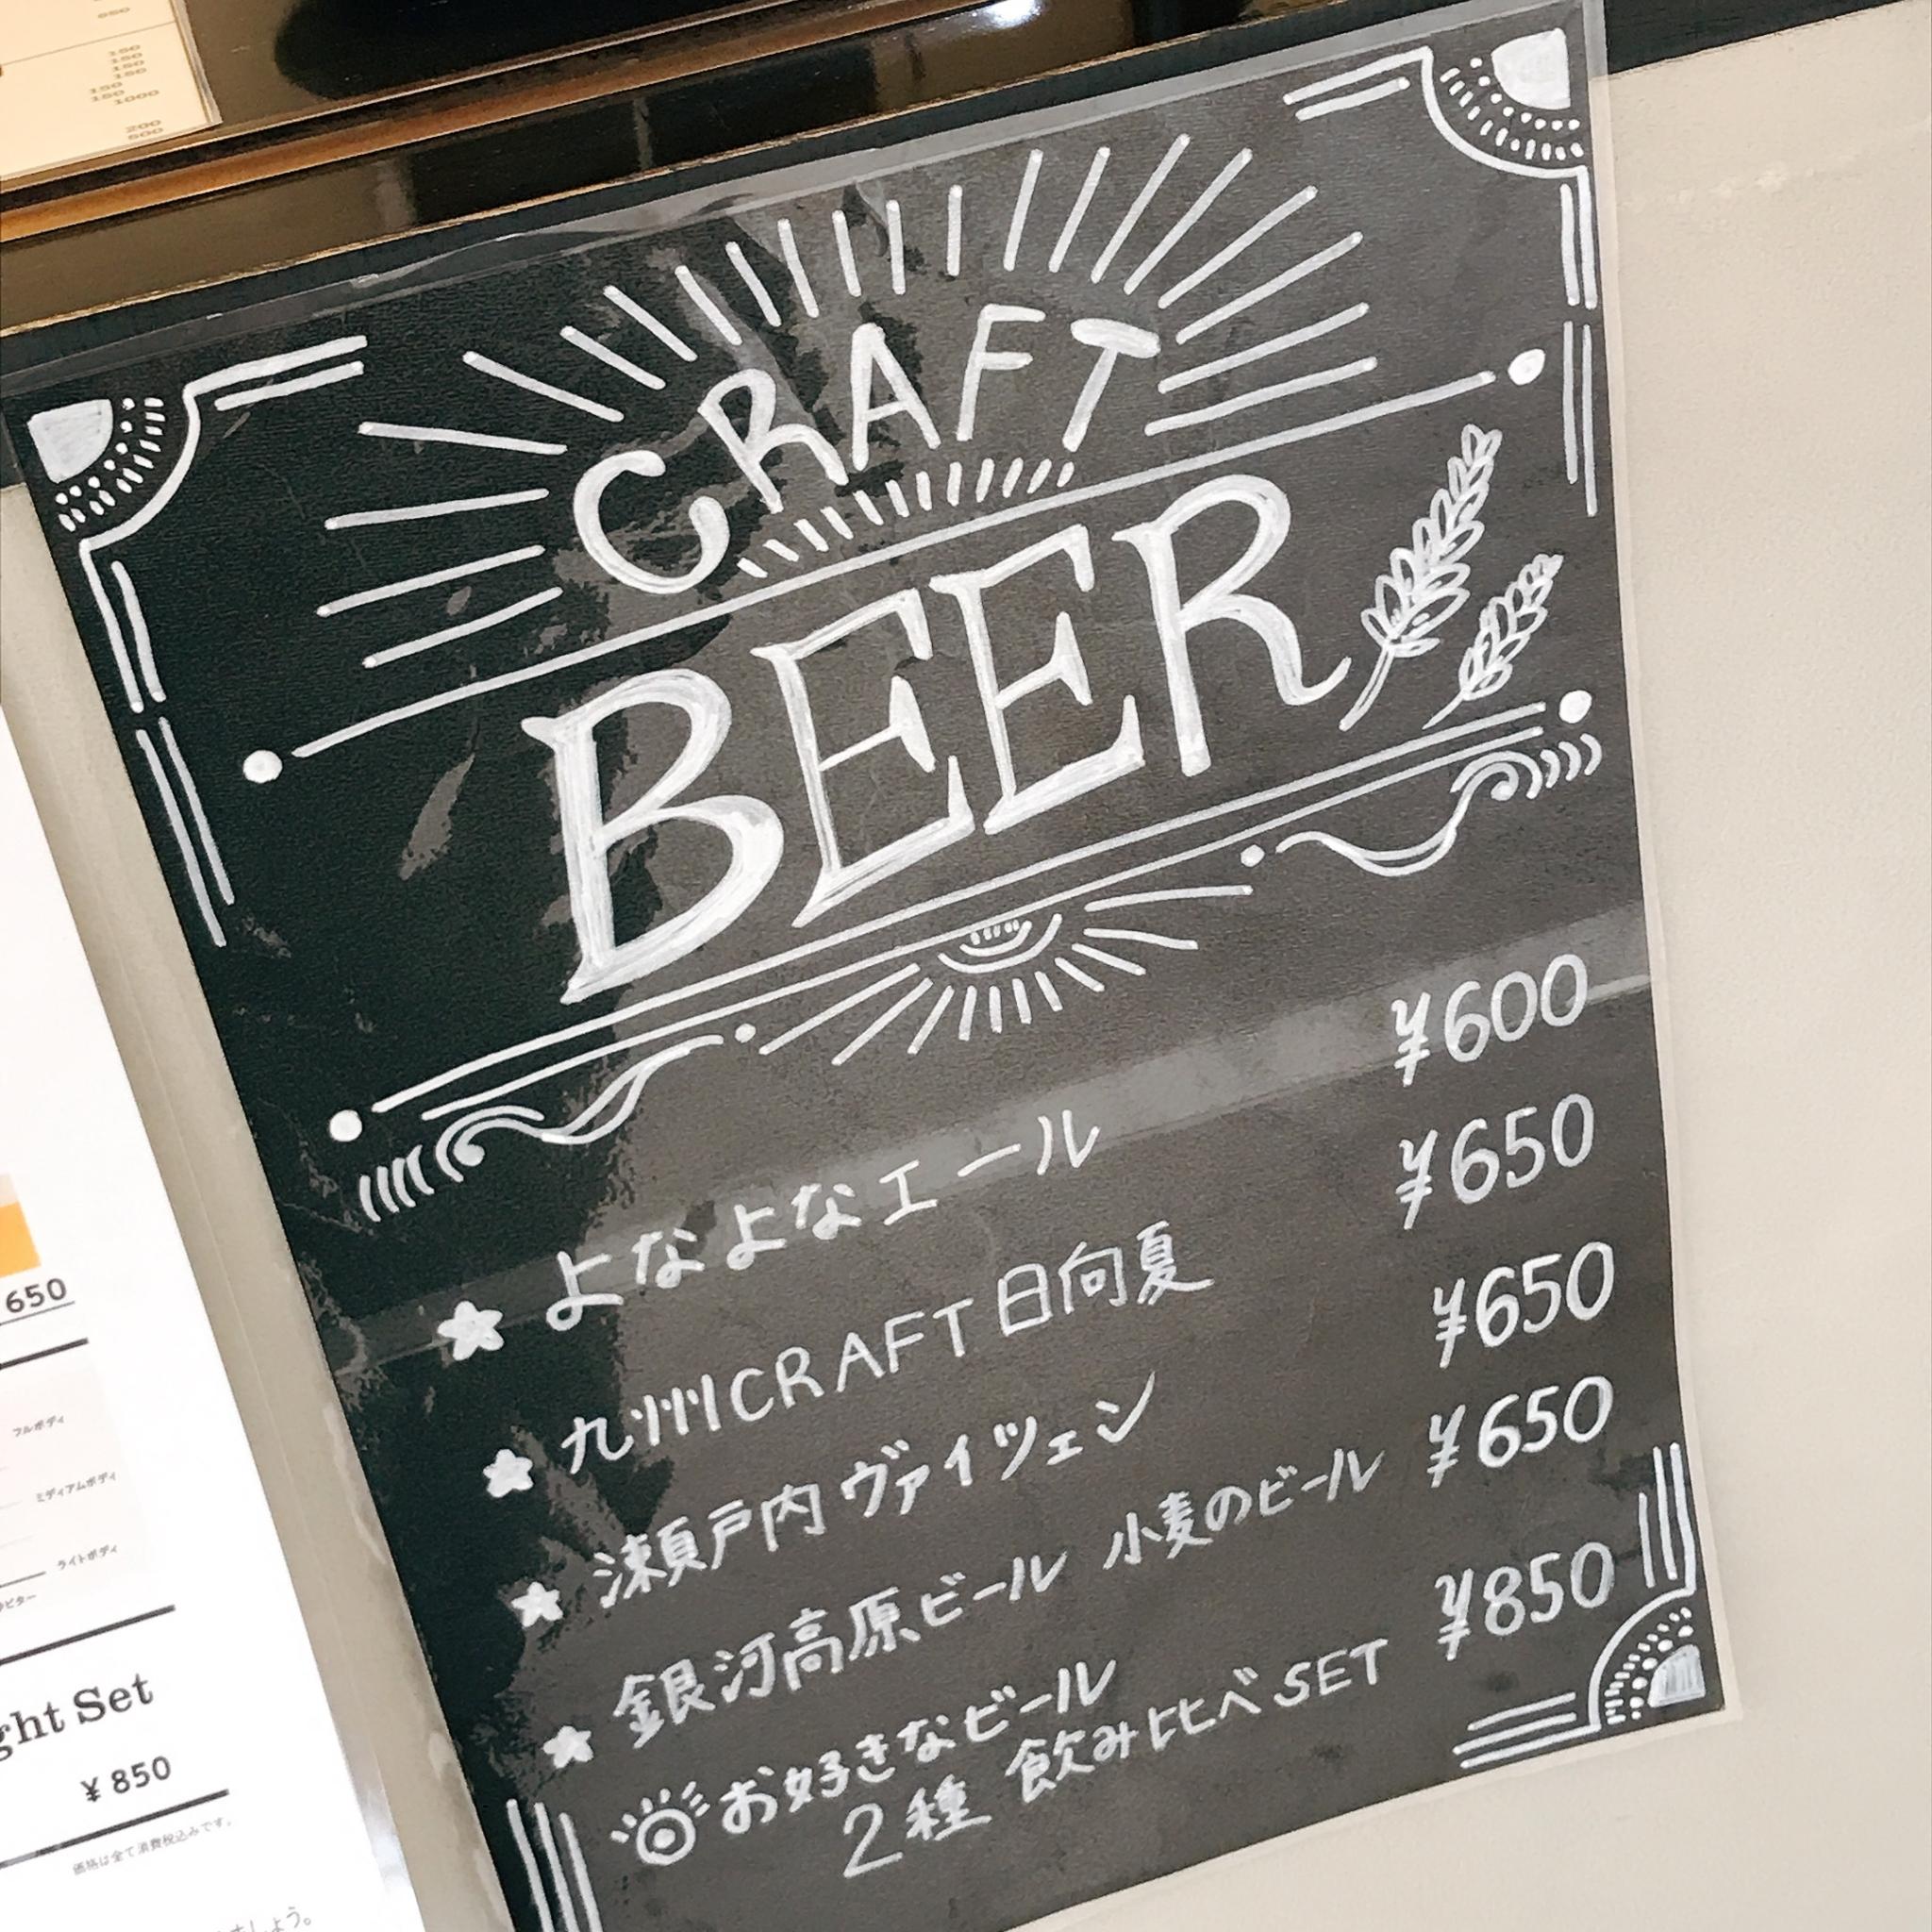 850
150
150
150
150
150
150
1000
200
500
CRAFT
BEER
★ よなよなエール ¥600
★ 九州CRAFT 日向夏 ¥650
★ 瀬戸内 ヴァイツェン ¥650
★ 銀河高原ビール 小麦のビール ¥650
お好きなビール
2種 飲み比べ SET ¥850
650
フルボディ
ミディアムボディ
ライトボディ
ght Set
¥ 850
価格は全て消費税込みです。
しょう。